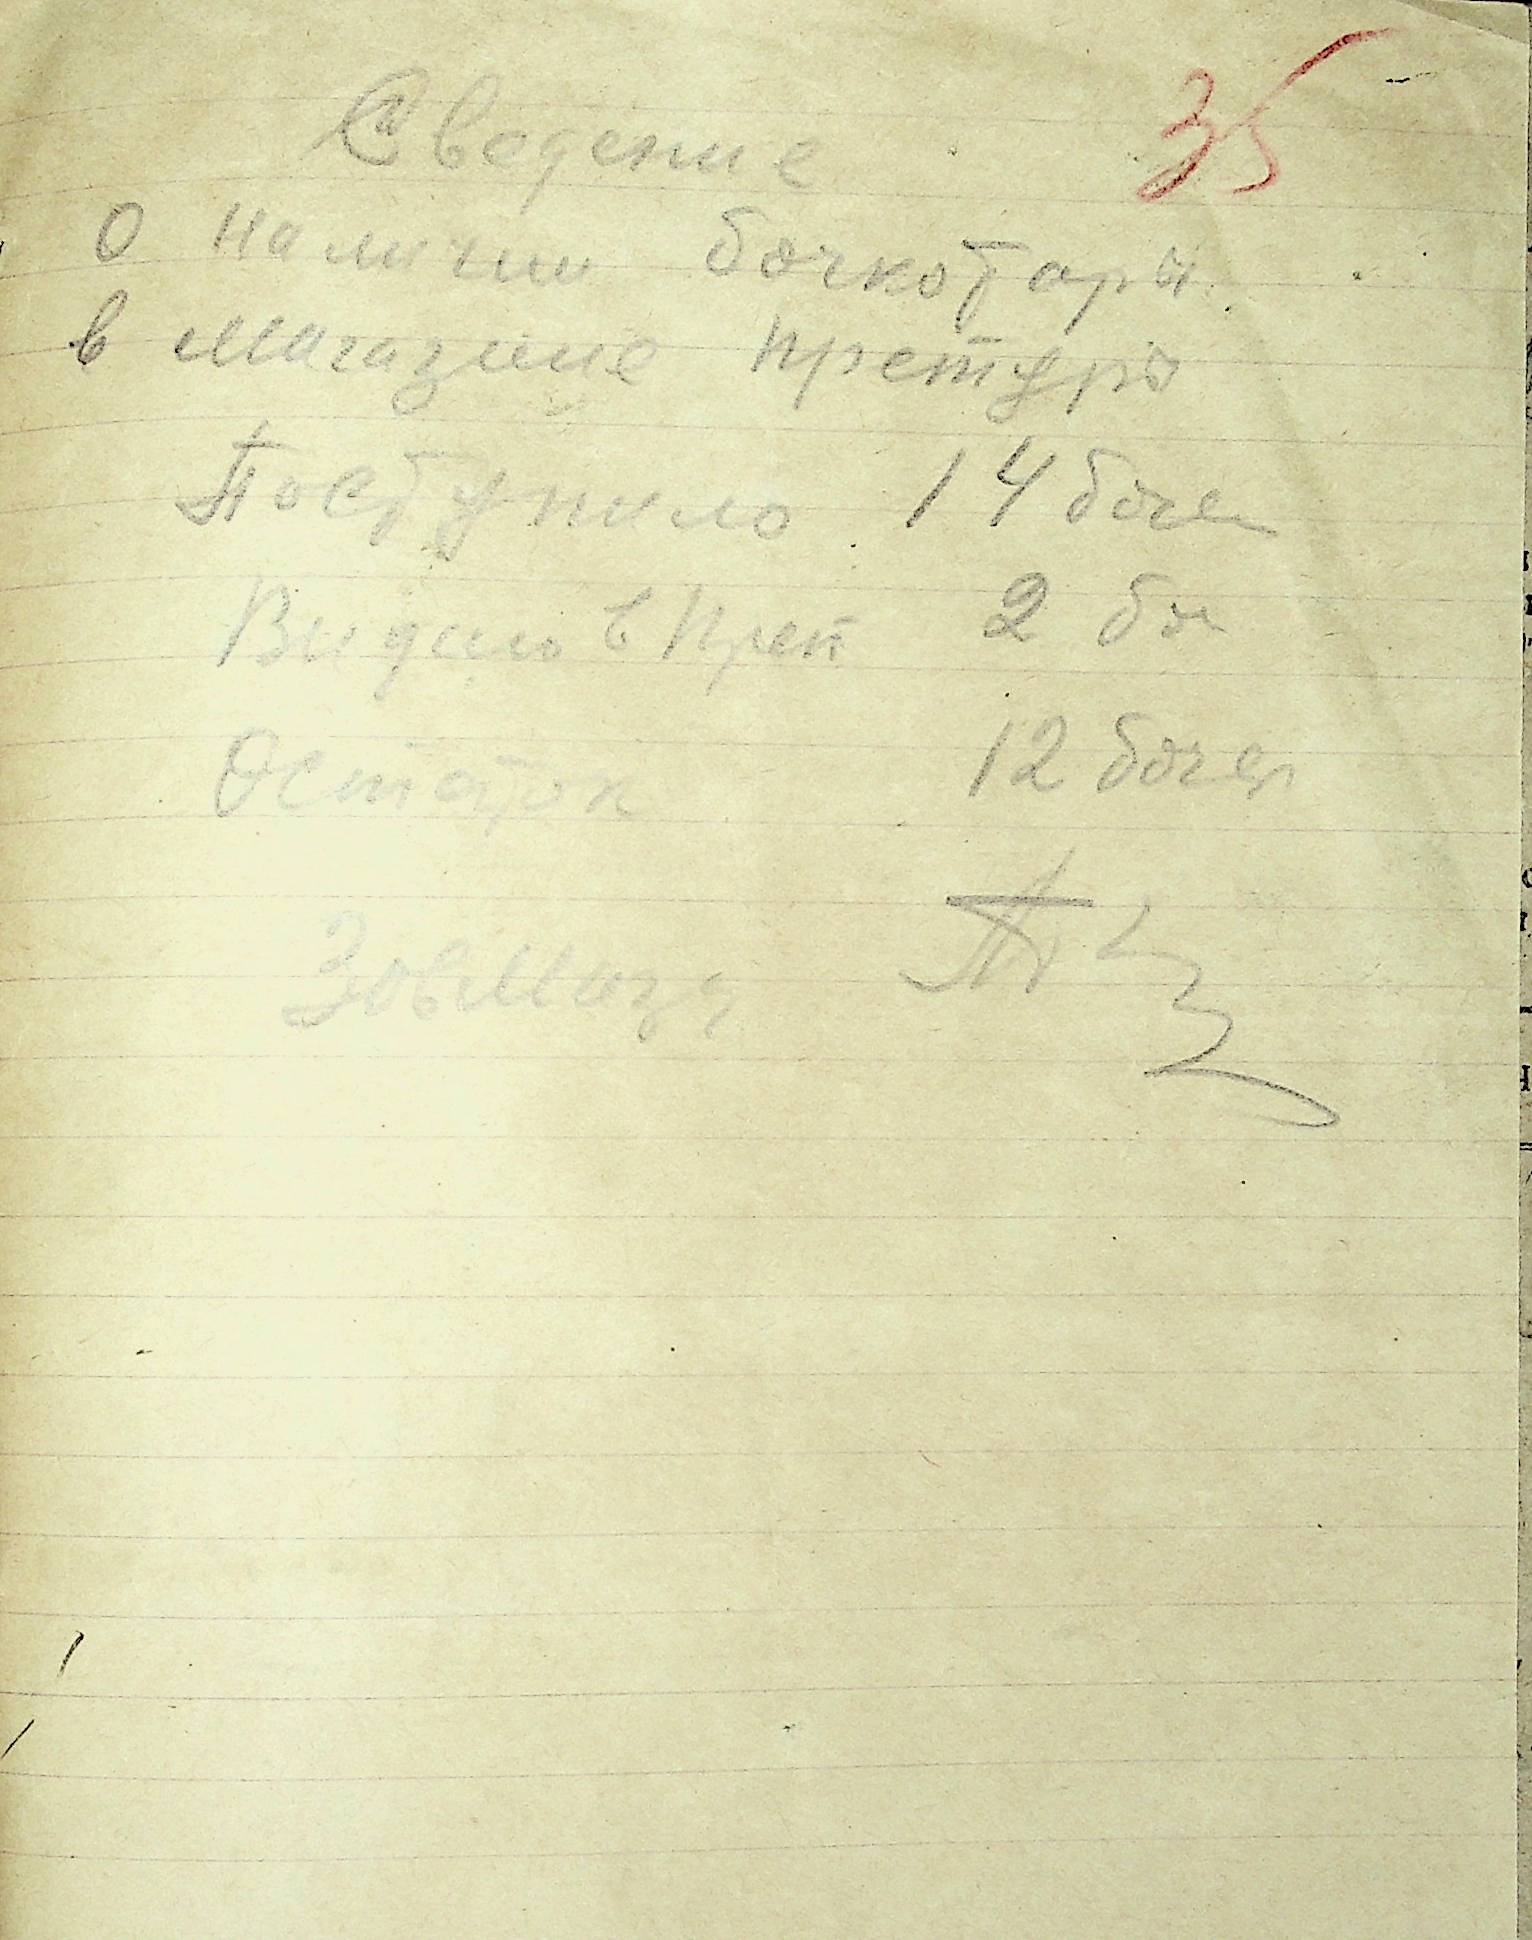 35
Сведение
о наличии бочкотары
в магазине претуры
Поступило 14 бочек
Видано в Прет 2 бо
Остаток 12 бочек
Завмага